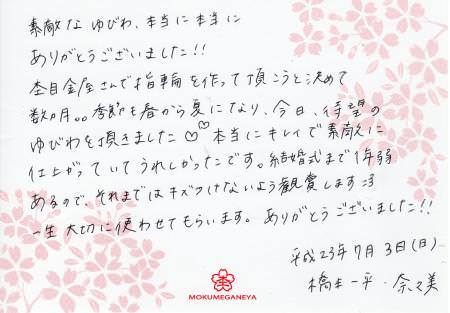 素敵な ゆびわ、本当に本当に
ありがとうございました!!
杢目金屋さんで指輪を作って頂こうと決めて
数ヵ月。。季節も春から夏になり、今日、待望の
ゆびわを頂きました♡♡ 本当にキレイで素敵に
仕上がっていてうれしかったです。結婚式まで1年弱
あるので、それまではキズつけないよう観賞します
一生大切に使わせてもらいます。ありがとうございました!!
平成23年7月3日(日)
橋本一平・奈々美
MOKUMEGANEYA